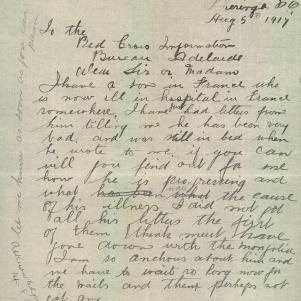 Pierenga PO
Aug 5th 1917
To the
Red Cross Information
Bureau Adelaide
Dear Sir or Madam
I have a son in France who
is now ill in hospital in France
somewhere. I have had letters from
him telling me he has been very
bad and was still in bed when
he wrote to me, if you can
will you find out for me
how he is progressing and
what was the cause
of his illness I did not get
all his letters the first
of them I think must have
gone down with the mongolia
I am so anchous about him and
we have to wait so long now for
the mails and then perhaps not
get any
let me know as soon as you can